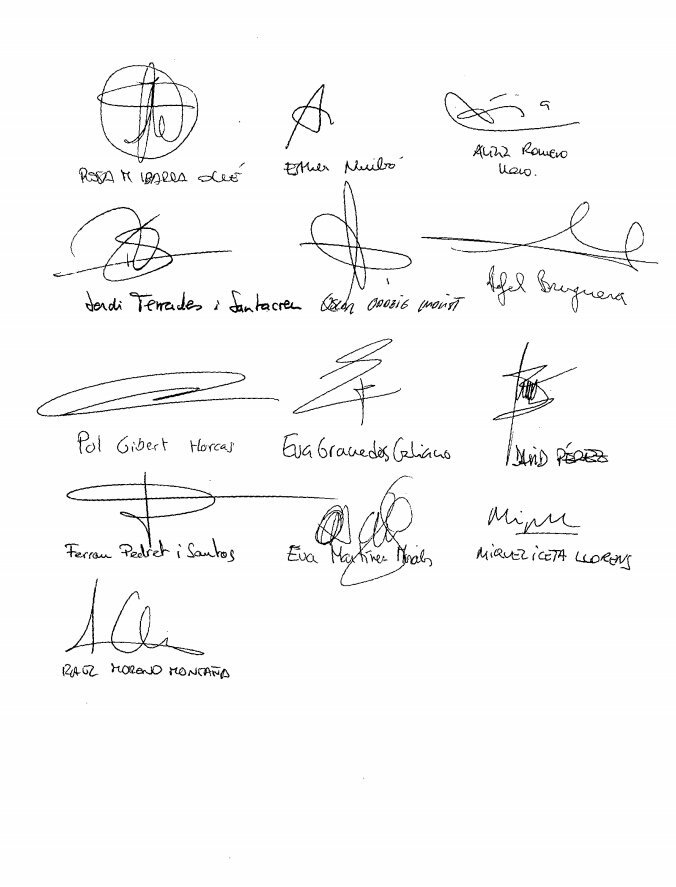 ROSA M IBARRA OLLÉ
Esther Niubó
ALÍCIA ROMERO
LLANO.
Jordi Terrades i Santacreu
Òscar ORDEIG I MOLIST
Rafel Bruguera
Pol Gibert Horcas
Eva Granados Galiano
DAVID PÉREZ
Ferran Pedret i Santos
Eva Martínez Morales
Miquel
MIQUEL ICETA LLORENS
RAÚL MORENO MONTAÑA